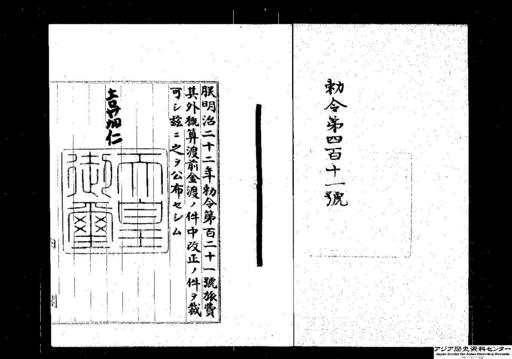 勅令第四百十一號
朕明治二十二年勅令第百二十一號旅費
其外概算渡前金渡ノ件中改正ノ件ヲ裁
可シ茲ニ之ヲ公布セシム
嘉仁
天皇
御璽
内閣
アジア歴史資料センター
Japan Center for Asian Historical Records